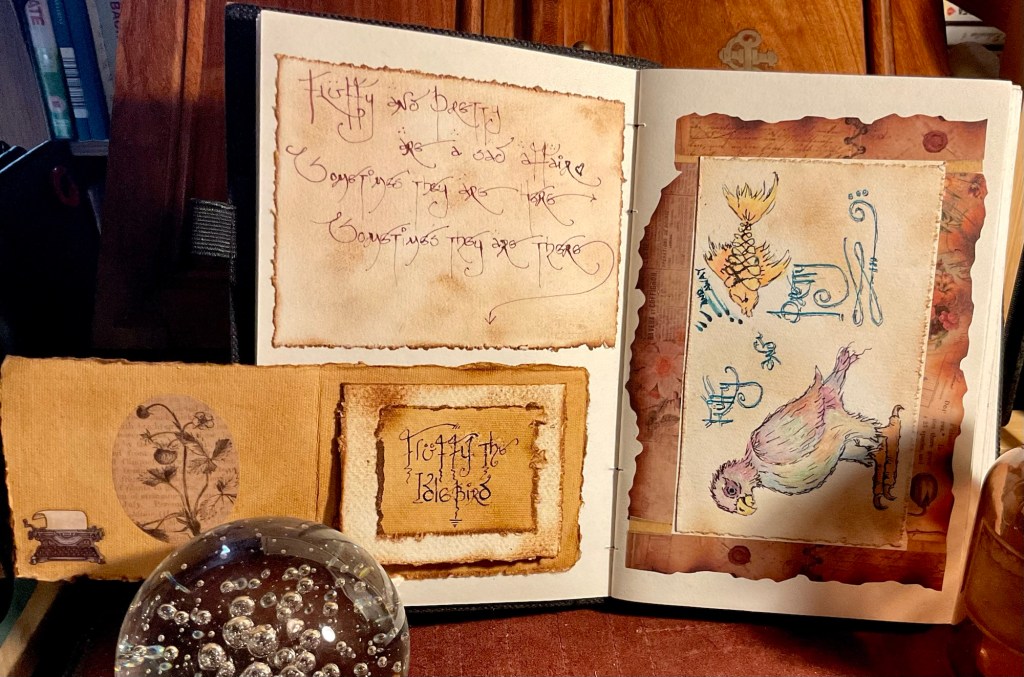 Fluffy and Pretty
are a sad affair
Sometimes they are here
Sometimes they are there
Fluffy the
Idle Bird
Fluffy and
Pretty